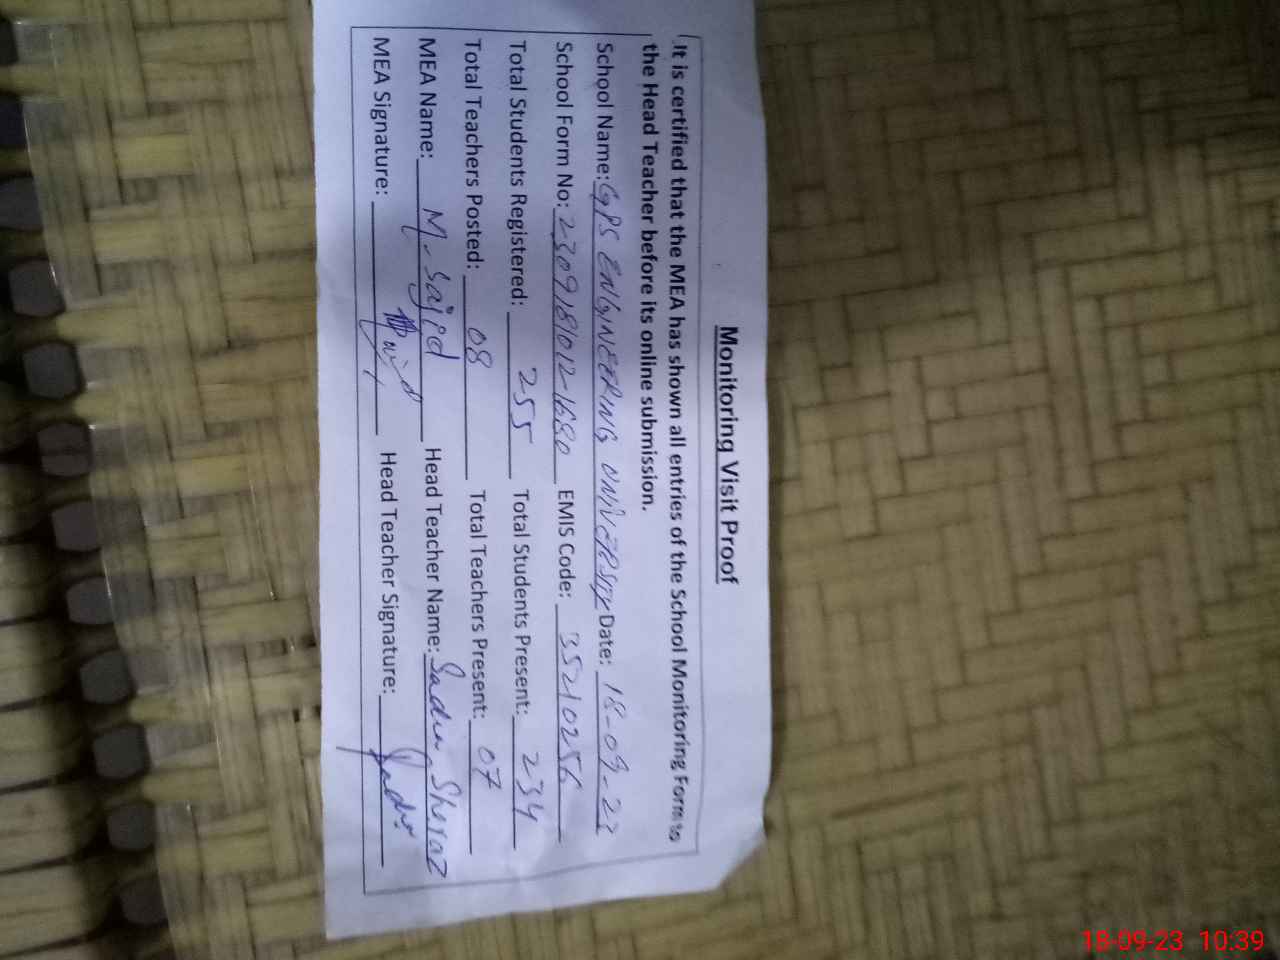 Monitoring Visit Proof
It is certified that the MEA has shown all entries of the School Monitoring Form to
the Head Teacher before its online submission.
School Name: GPS ENGINEERING UNIVERSITY Date: 18-09-23
School Form No: 23091810121680 EMIS Code: 35210256
Total Students Registered: 255 Total Students Present: 234
Total Teachers Posted: 08 Total Teachers Present: 07
MEA Name: M. Sajid Head Teacher Name: Sadia Sheraz
MEA Signature: Head Teacher Signature:
18-09-23 10:39